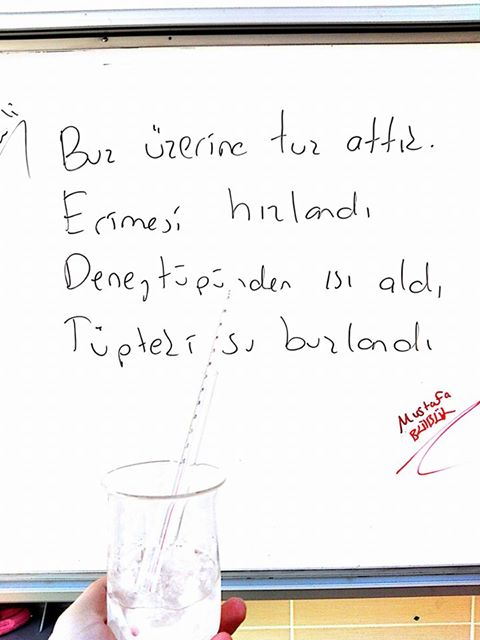 Buz üzerine tuz attık.
Erimesi hızlandı
Deney tüpünden ısı aldı
Tüpteki su buzlandı
Mustafa